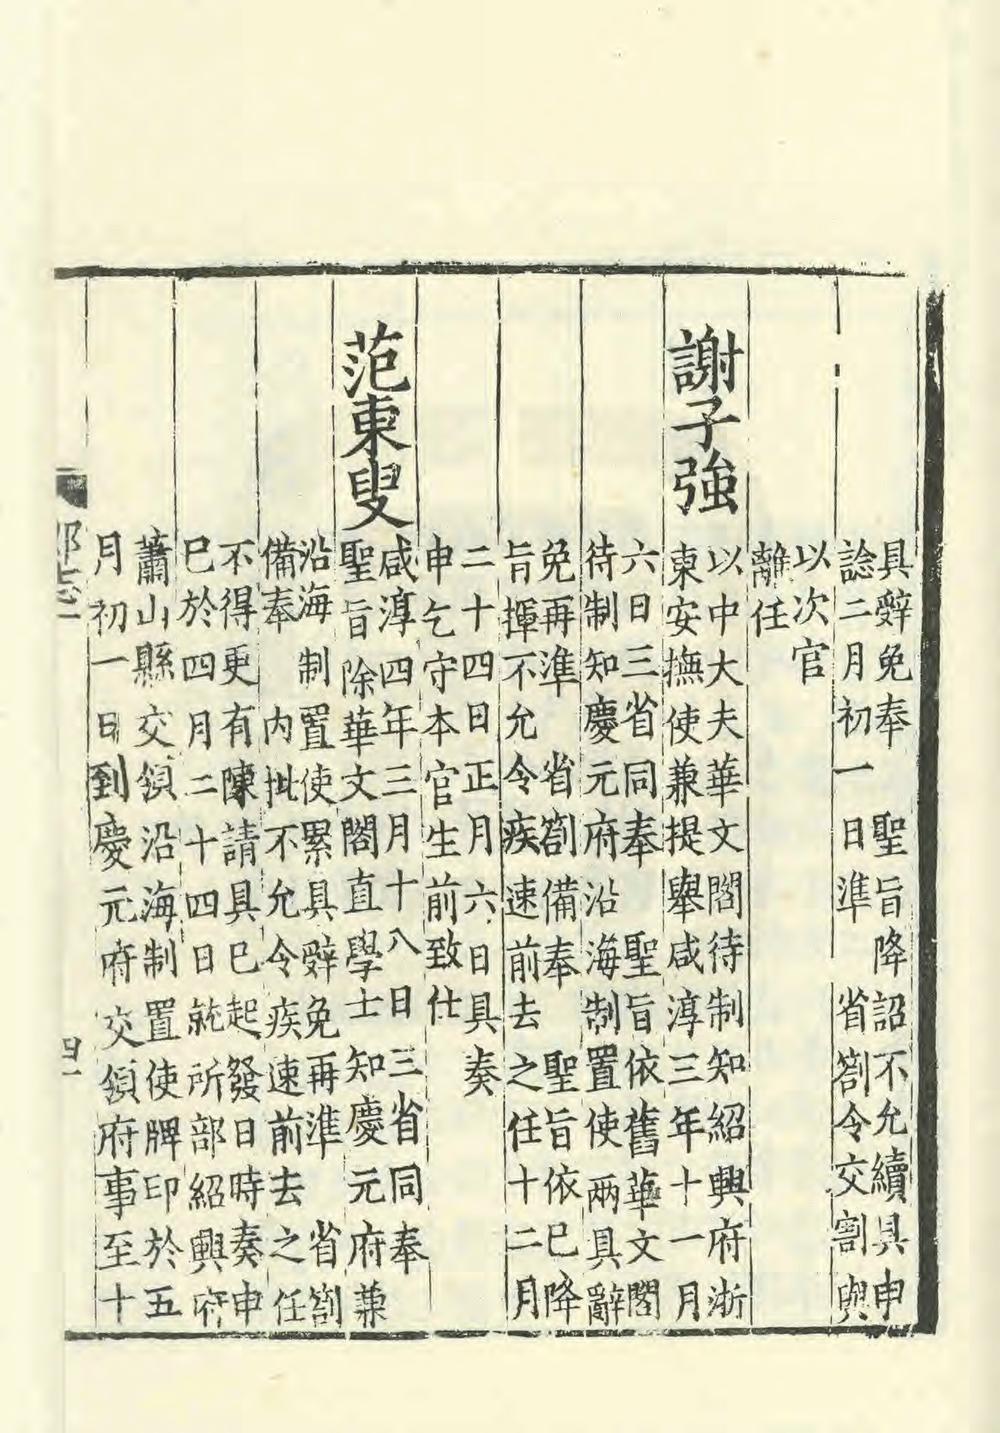 具辭免奉　聖旨降詔不允續具申
諗二月初一日準　省劄令交割與
以次官
離任
謝子強
以中大夫華文閣待制知紹興府浙
東安撫使兼提舉咸淳三年十一月
六日三省同奉　聖旨依舊華文閣
待制知慶元府沿海制置使兩具辭
免再準　省劄備奉　聖旨依已降
旨揮不允令疾速前去之任十二月
二十四日正月六日具奏
申乞守本官生前致仕
范東叟
咸淳四年三月十八日三省同奉
聖旨除華文閣直學士知慶元府兼
沿海制置使累具辭免再準　省劄
備奉　內批不允令疾速前去之任
不得更有陳請具已起發日時奏申
已於四月二十四日就所部紹興府
蕭山縣交領沿海制置使牌印於五
月初一日到慶元府交領府事至十
郡志一
四